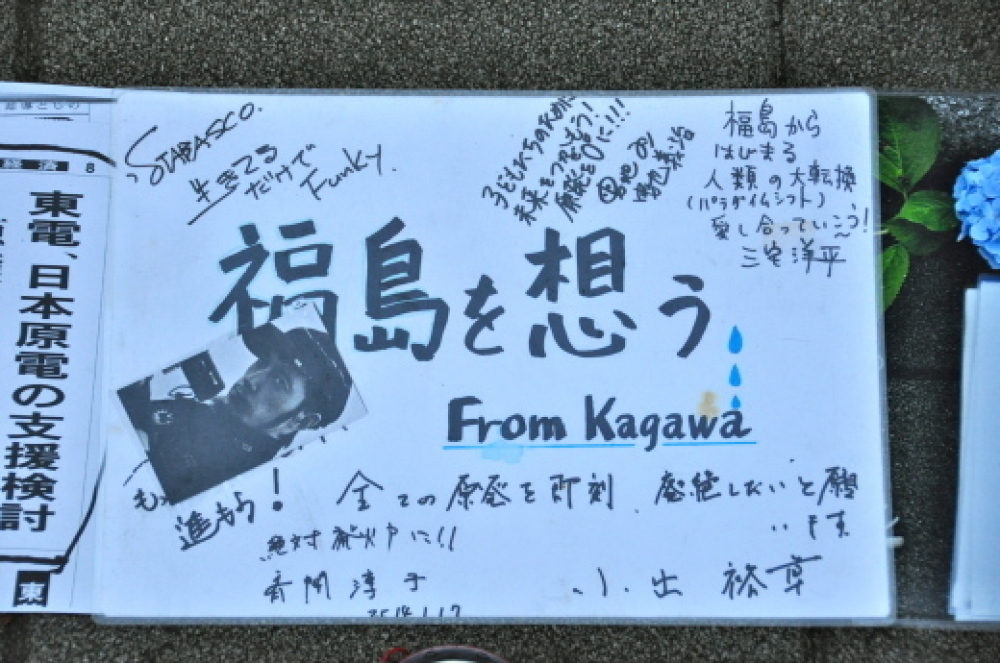 経済 8
東電、日本原電の支援検討
東
STABASCO.
生きてる
だけで
Funky.
子どもたちのために
未来をつなごう!
原発を0に!!!
福島から
はじまる
人類の大転換
(パラダイムシフト)
愛し合っていこう!
三宅洋平
福島を想う
From Kagawa
もっ
進もう!
全ての原発を即刻 廃絶したいと願
います
絶対廃炉に!!
斉間淳子
小出裕章